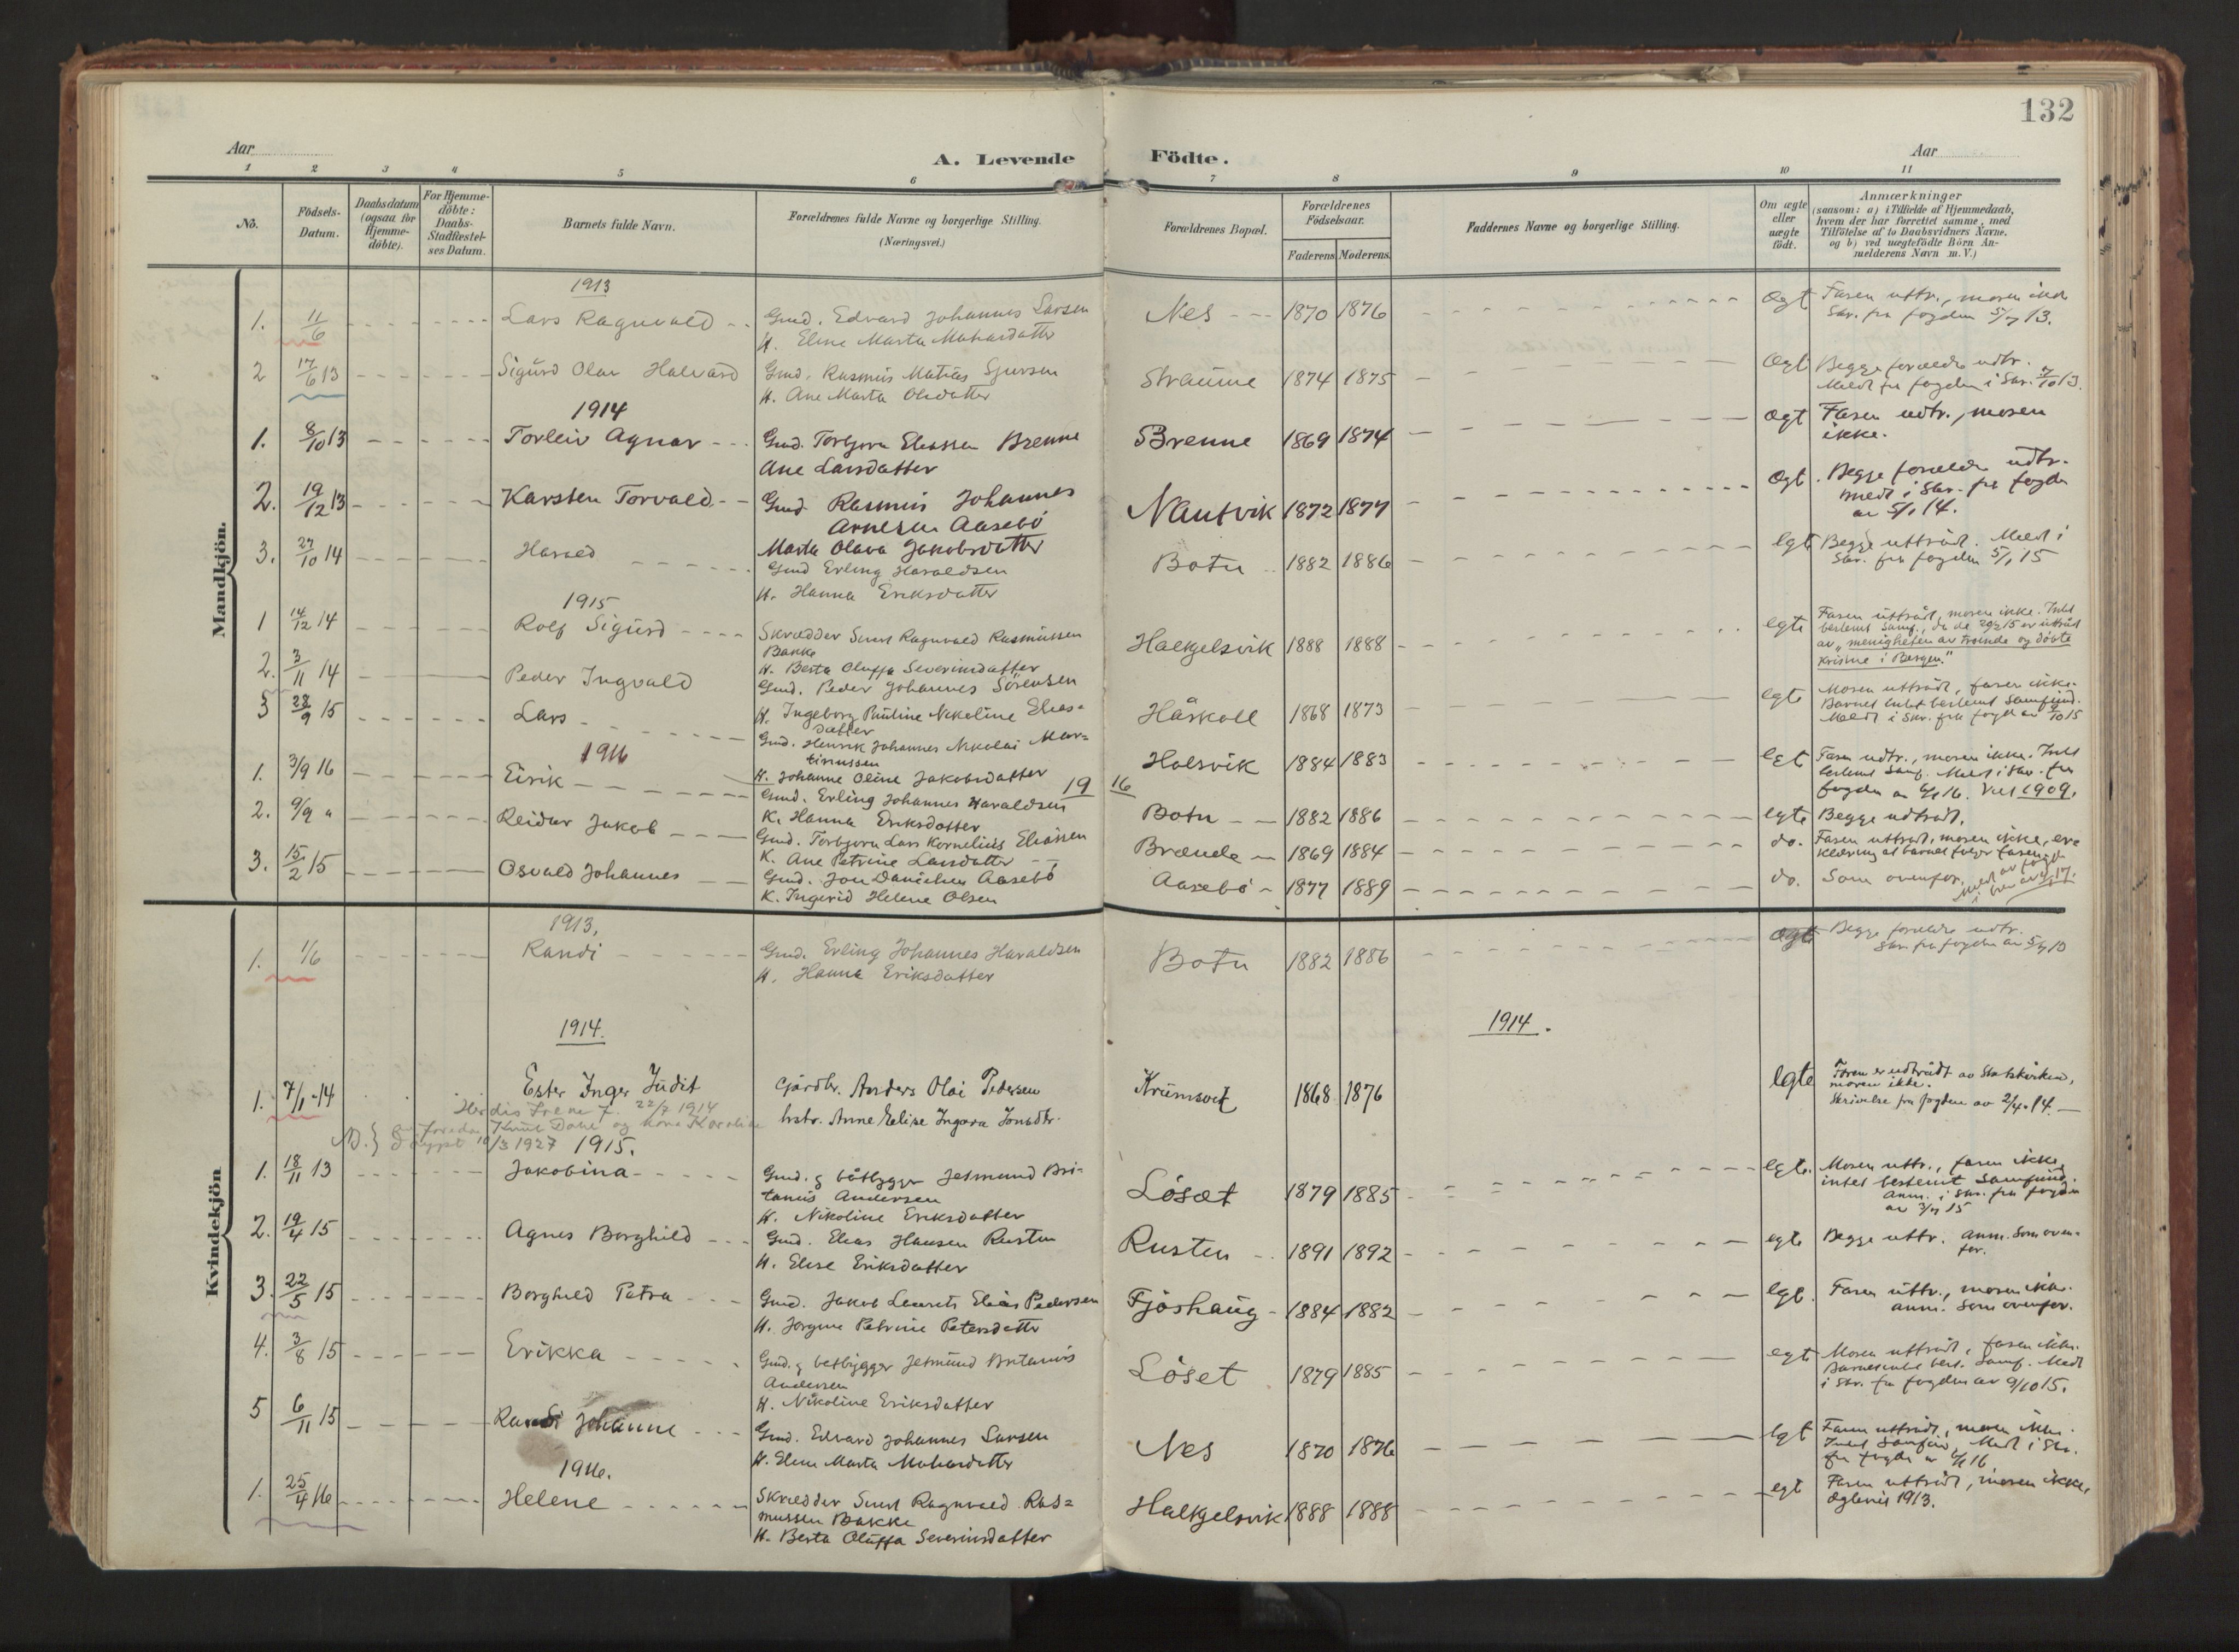 132
Aar
A. Levende Födte.
Aar
1 2 3 4 5 6 7 8 9 10 11
No.
Födsels-Datum.
Daabsdatum (ogsaa for Hjemme-döbte).
For Hjemme-döbte: Daabs-Stadfæstel-ses Datum.
Barnets fulde Navn.
Forældrenes fulde Navne og borgerlige Stilling.
(Næringsvei.)
Forældrenes Bopæl.
Forældrenes Födselsaar.
Faderens Moderens
Faddernes Navne og borgerlige Stilling.
Om ægte eller uægte födt.
Anmærkninger
(saasom: a) i Tilfælde af Hjemmedaab, hvem der har forrettet samme, med Tilföielse af to Daabsvidners Navne, og b) ved uægtefödte Börn An-melderens Navn m. V.)
Mandkjön.
1913
1. 11/6 Lars Ragnvald Gmd. Edvard Johannes Larsen Nes 1870 1876 Ægt Faren uttr., moren ikke
H. Eline Marta Skr. fra fogden 5/7 13.
2 17/6 13 Sigurd Olav Halvard Gmd. Rasmus Matias Sjursen Straume 1874 1875 Ægt Begge forældre udtr.
H. Ane Marta Olsdatter Meldt fra fogden i Skr. 7/10 13.
1914
1. 8/10 13 Torleiv Agnar Gmd. Torbjørn Eliassen Brenne Brenne 1869 1874 Ægt Faren udtr., moren
Ane Larsdatter ikke.
2. 19/12 13 Karsten Torvald Gmd Rasmus Johannes Nautvik 1872 1877 Ægt. Begge forældre udtr.
Arnesen Aasebö meldt i Skr. fra fogden
Marta Olava Jakobsdatter av 5/1 14.
3. 27/10 14 Harald Gmd Erling Haraldsen Botn 1882 1886 Egt Begge uttrådt. Meldt i
H. Hanna Eriksdatter Skr. fra fogden 5/1 15
1915
1 14/12 14 Rolf Sigurd Skrædder Sivert Ragnvald Rasmussen Halkjelsvik 1888 1888 egte Faren uttrådt, moren ikke. Intet
Bakke bestemt Samf., da de 29/2 15 er uttrådt
H. Berta Oluffa Severinsdatter av "menigheten av troende og döbte
kristne i Bergen."
2. 3/11 14 Peder Ingvald Gmd. Peder Johannes Sörensen Håskoll 1868 1873 egte Moren uttrådt, faren ikke.
H. Ingeborg Pauline Nikoline Elias=datter Barnet intet bestemt Samfund.
Meldt i Skr. fra fogden av 9/10 15
3 28/9 15 Lars Gmd. Henrik Johannes Nikolai Mar=tinussen Holsvik 1884 1883 egt Faren udtr., moren ikke. Intet
H. Johanne Oline Jakobsdatter bestemt Samf. Meldt i Skr. fra
fogden av 6/1 16. Viet 1909.
1916
19 16
1. 3/9 16 Eirik Gmd. Erling Johannes Haraldsen Botn 1882 1886 egte Begge udtrådt.
K. Hanna Eriksdatter
2. 9/9 " Reidar Jakob Gmd. Torbjørn Lars Kornelius Eliassen Brænde 1869 1884 do. Faren uttrådt, moren ikke, er=
K. Ane Petrine Larsdatter klæring at barnet følger faren.
3. 15/2 15 Osvald Johannes Gmd. Jon Danielsen Aasebö Aasebö 1877 1889 do. Som ovenfor.
K. Ingerid Helene Olsen
Kvindekjön
1913.
1. 1/6 Randi Gmd. Erling Johannes Haraldsen Botn 1882 1886 Ægte Begge forældre udtr.
H. Hanna Eriksdatter Skr. fra fogden av 5/7 13
1914. 1914.
1. 7/1-14 Ester Inger Judit Gårdbr. Anders Olai Pedersen Krumsvik 1868 1876 egte Faren er udtrådt av Statskirken,
hstr. Anne Elise Ingara Jonsdtr. moren ikke.
Skrivelse fra fogden av 2/4-14.
Herdis Irene f. 22/7 1914
Knut Dahl og kone Karoline
N.B. } döypt 10/3 1927
1915.
1. 18/11 13 Jakobina Gmd. & båtbygger Jetmund Bri=tanius Andersen Löset 1879 1885 egte. Moren uttr., faren ikke
H. Nikoline Eriksdatter intet bestemt Samfund.
Anm. i Skr. fra fogden
av 3/7 15
2. 19/4 15 Agnes Borghild Gmd. Elias Hansen Rusten Rusten 1891 1892 egte Begge uttr. Anm. Som oven=for.
H. Elise Eriksdatter
3. 22/5 15 Borghild Petra Gmd. Jakob Laurits Elias Pedersen Fjöshaug 1884 1882 egt. Faren uttr., moren ikke.
H. Jorgine Petrine Petersdatter anm. Som ovenfor.
4. 3/8 15 Erikka Gmd. & båtbygger Jetmund Britanius Löset 1879 1885 egte Moren uttrådt, faren ikke.
Andersen Barnet intet best. Samf. Meldt
H. Nikoline Eriksdatter i Skr. fra fogden av 9/10 15.
5 6/11 15 Randi Johanne Gmd. Edvard Johannes Larsen Nes 1870 1876 egt Faren uttrådt, moren ikke.
H. Eline Marta Intet Samfund. Meldt i Skr.
fra fogden av 6/1 16
1916.
1. 25/4 16 Helene Skrædder Sivert Ragnvald Ras=mussen Bakke Halkjelsvik 1888 1888 egt Faren uttrådt, moren ikke.
H. Berta Oluffa Severinsdatter Ægtevis 1913.